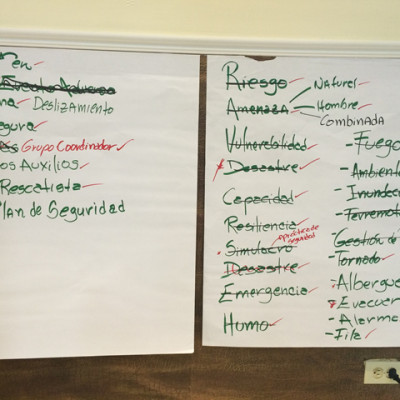 en
Evento Adverso
Deslizamiento
Grupo Coordinador
os Auxilios
Rescatista
lan de Seguridad
Riesgo
Amenaza
Naturel
Hombre
Combinada
Vulnerabilidad
Desastre
Capacidad
Resiliencia
Simulacro
Desastre
Emergencia
Humo
-Fuego
-Ambienta
-Inundaci
-Terremot
-Gestión de
-Tornado
-Albergue
-Evacuar
-Alarma
-Fila